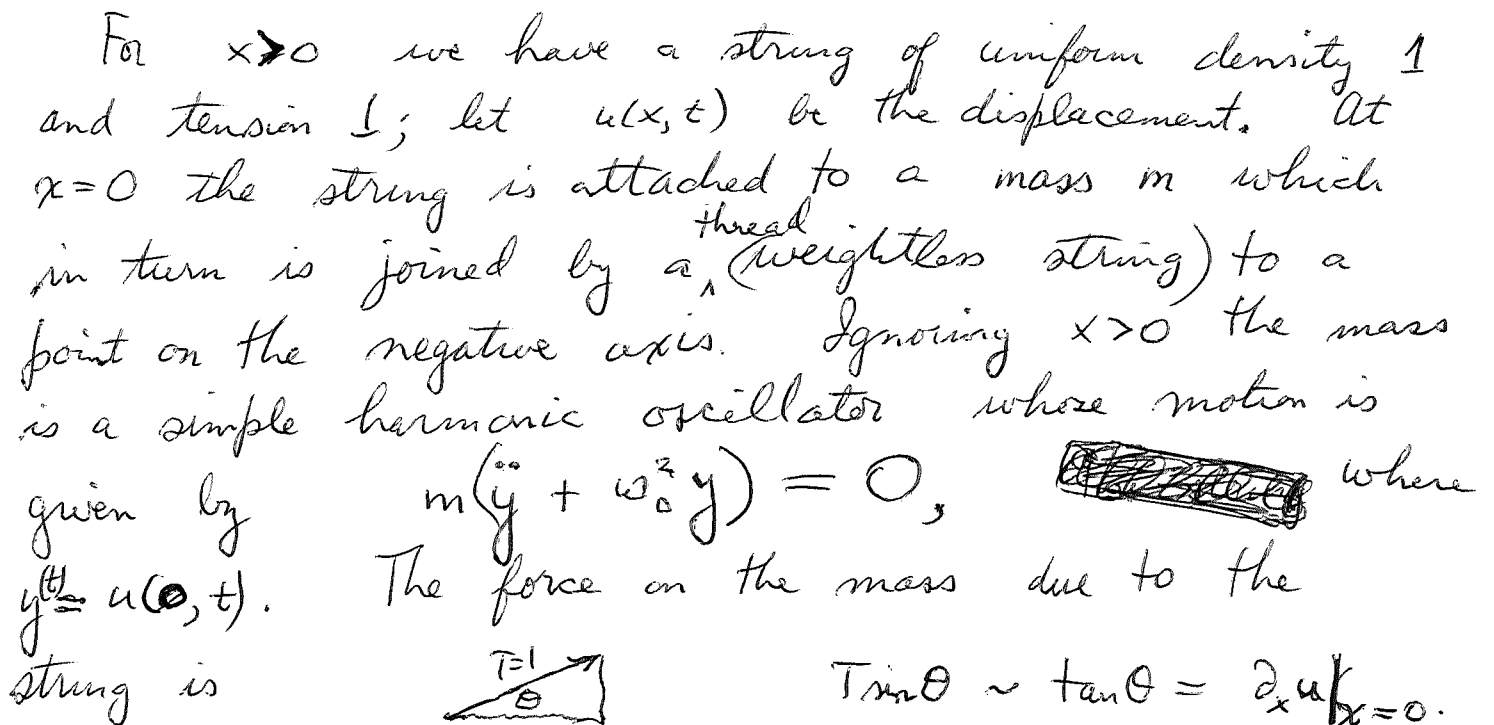 For x>0 we have a string of uniform density 1
and tension 1; let u(x,t) be the displacement. At
x=0 the string is attached to a mass m which
in turn is joined by a thread (weightless string) to a
point on the negative axis. Ignoring x>0 the mass
is a simple harmonic oscillator whose motion is
given by m(ÿ + ω₀²y) = 0, where
y(t) = u(0,t). The force on the mass due to the
string is T=1 θ T sin θ ~ tan θ = ∂ₓu|ₓ₌₀.